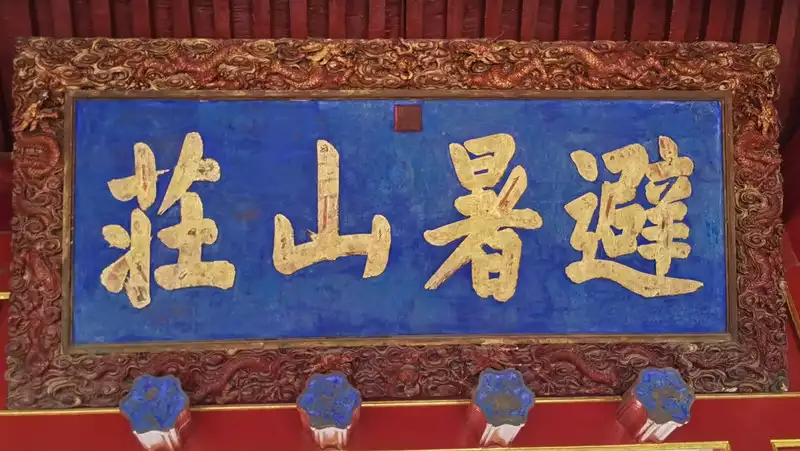 避暑山莊